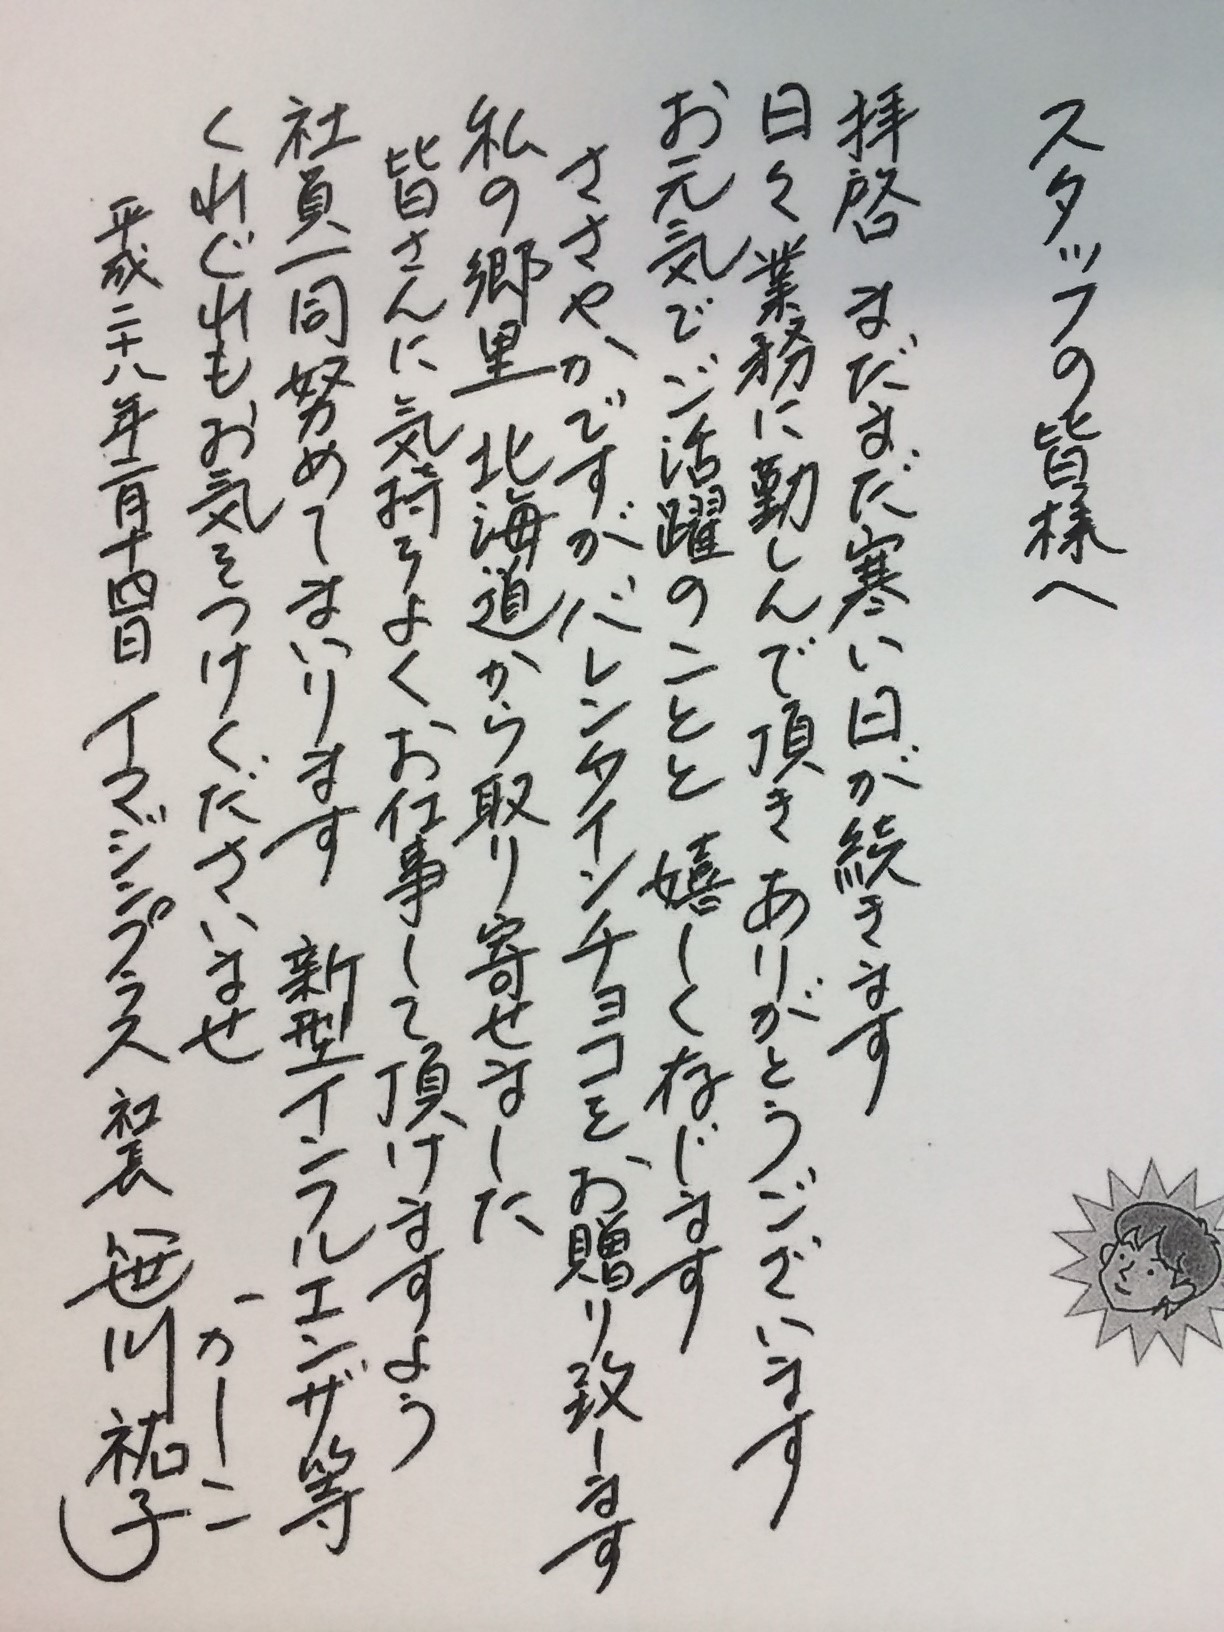 スタッフの皆様へ
拝啓 まだまだ寒い日が続きます
日々業務に勤しんで頂き ありがとうございます
お元気でご活躍のことと 嬉しく存じます
ささやかですがバレンタインチョコを、お贈り致します
私の郷里 北海道から取り寄せました
皆さんに気持ちよくお仕事して頂けますよう
社員一同努めてまいります 新型インフルエンザ等
くれぐれもお気をつけくださいませ かしこ
平成二十八年二月十四日 イマジンプラス 社長 笹川祐子